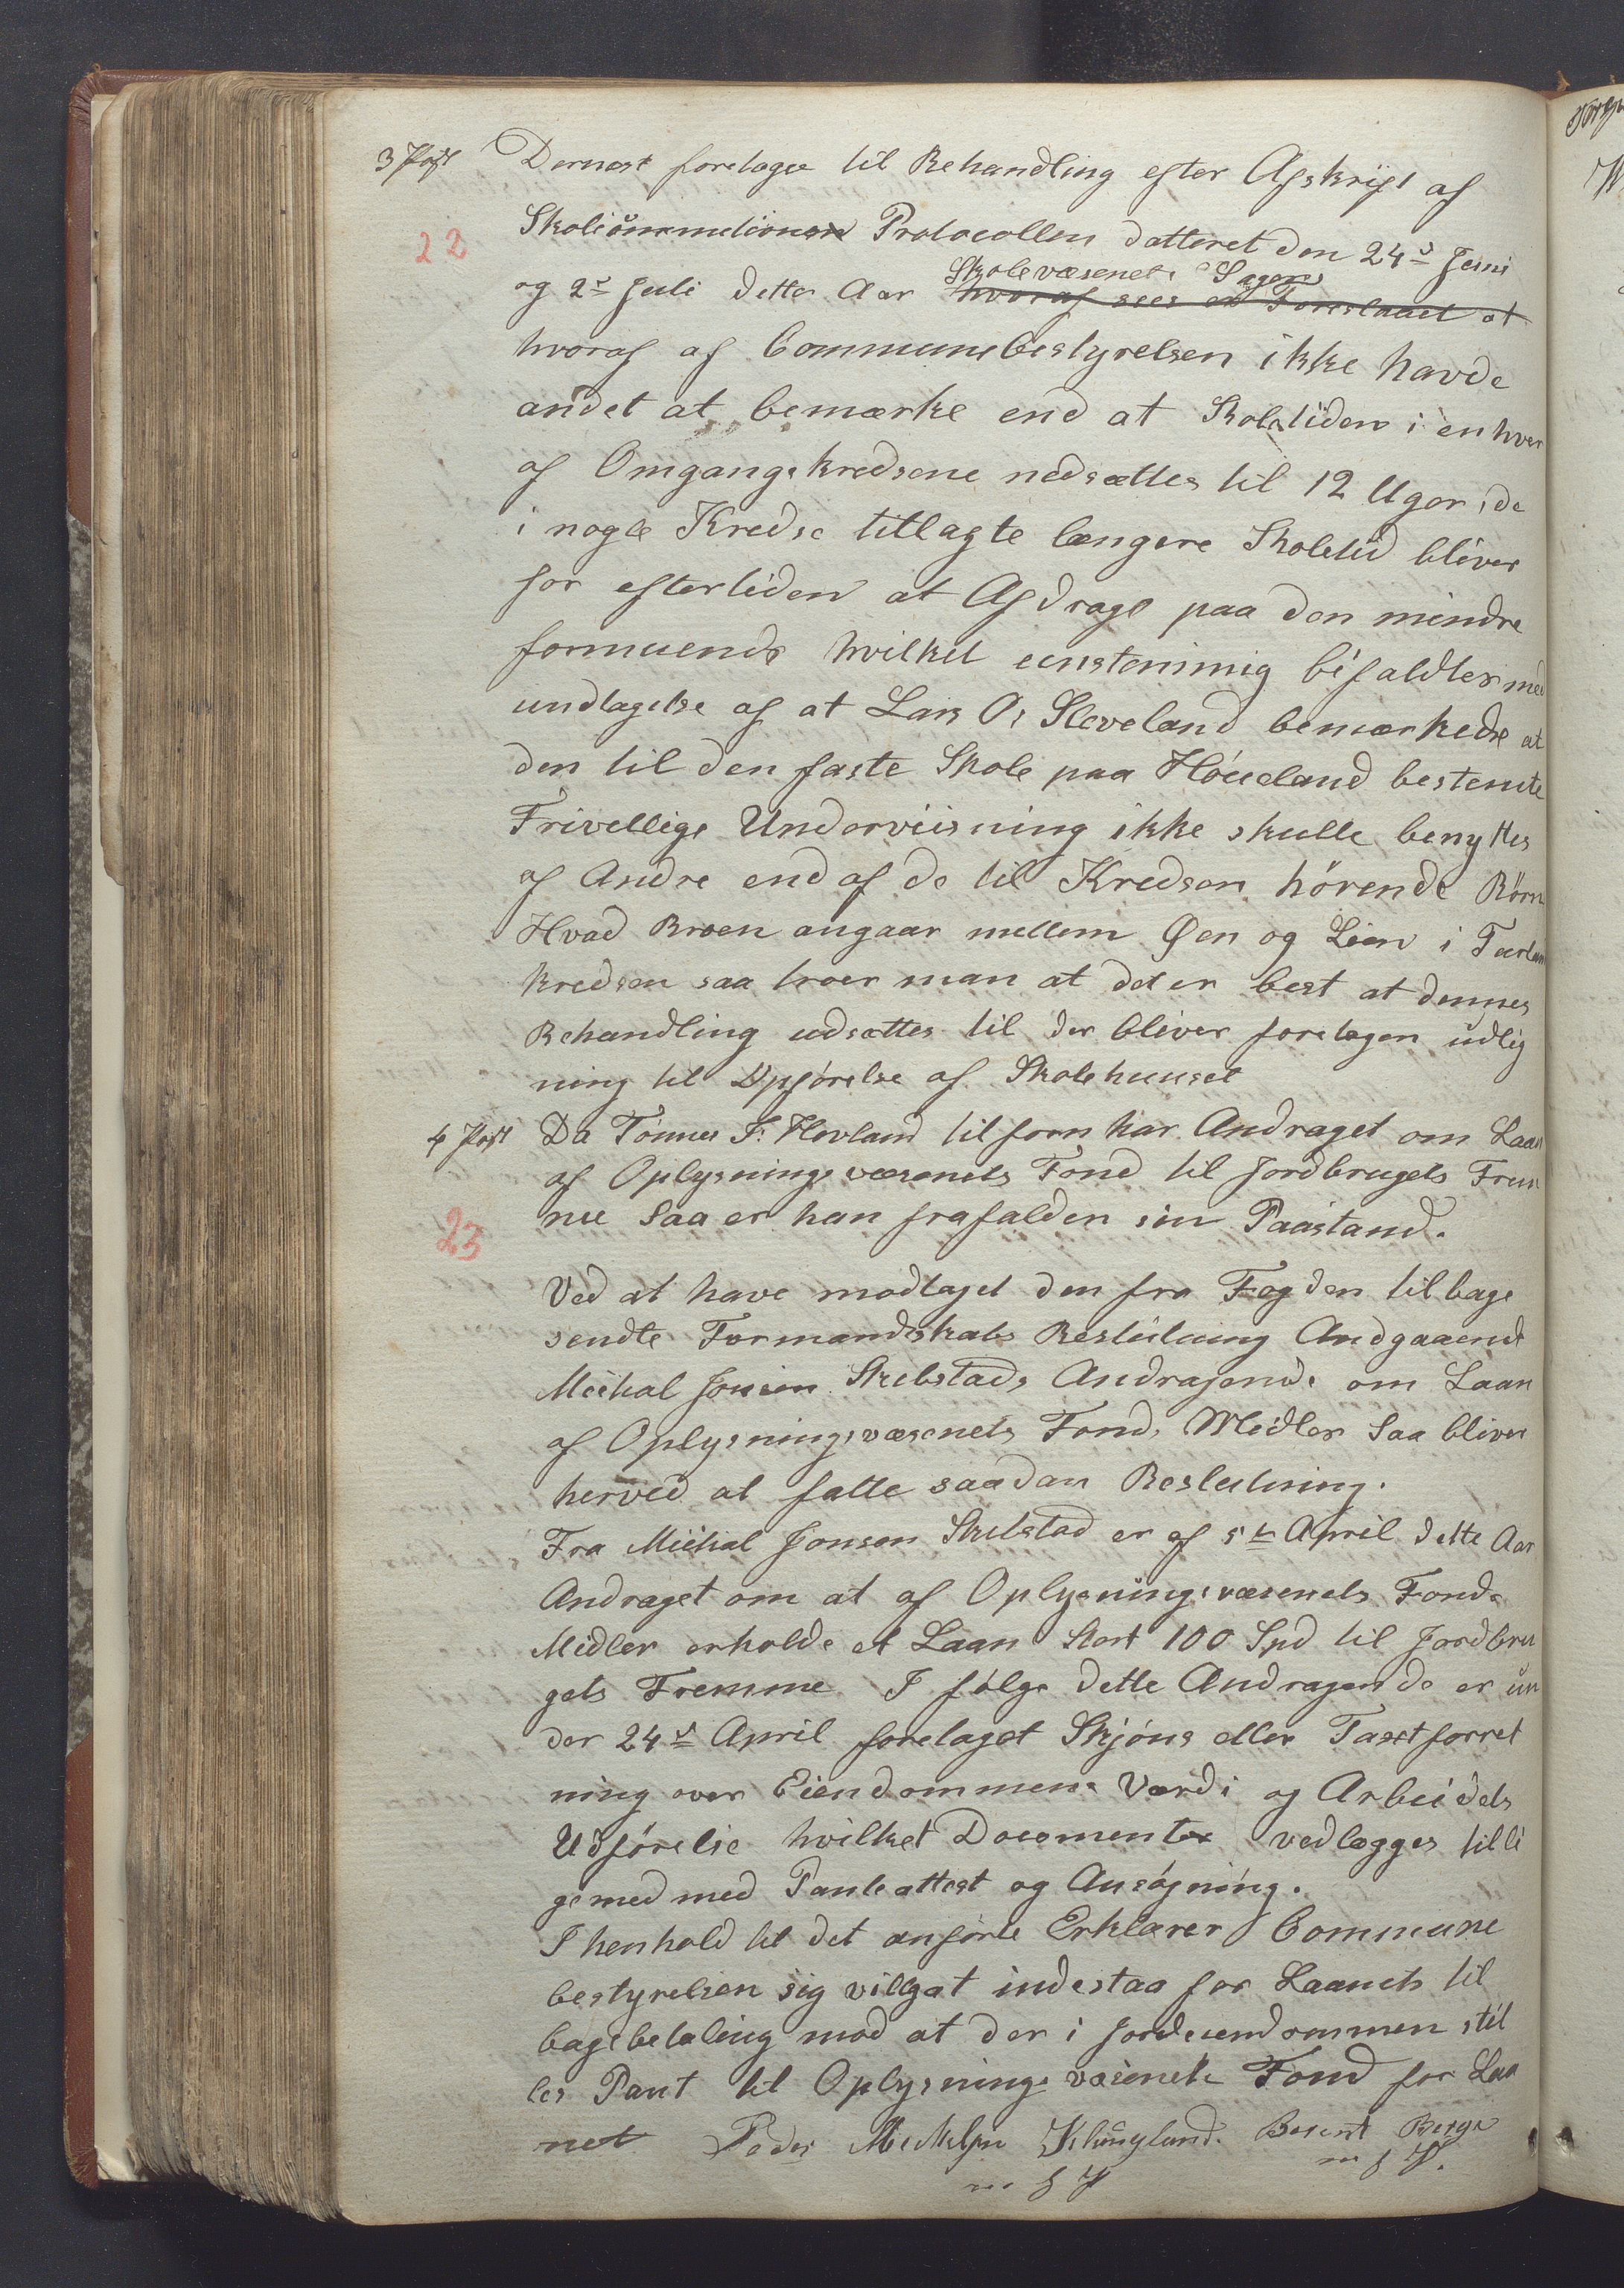 3 Post Dernæst foretoges til Behandling efter Afskrift af
22 Skolicommitionen Protocollen datteret den 24de Juni
Skolevæsenets Sager
og 2de Juli dette Aar hvoraf sees at Foreslaaet at
hvoraf af Communebestyrelsen ikke havde
andet at bemærke end at Skoletiden i enhver
af Omgangskredsene nedsættes til 12 Uger, de
i nogle Kredse tillagte længere Skoletid bliver
for eftertiden at Afdrage paa den mindre
formuende hvilket eenstemmig bifaldtes med
undtagelse af at Lars Os Sleveland bemærkede at
den til den faste Skole paa Höueland bestemte
Frivellige Underviisning ikke skulle benyttes
af Andre end af de til Kredsen hörende Börn
Hvad Broen angaar mellem Øen og Lien i
kredsen saa troer man at det er best at dennes
Behandling udsættes til der bliver foretagen udlig
ning til Opförelse af Skolehuuset
4 Post Da Tönnes F. Hovland tilforn har Andraget om Laan
af Oplysningsvæsenets Fond til Jordbrugets Frem
23 me saa er han frafalden sin Paastand.
Ved at have modtaget den fra Fogden tilbage
sendte Formandskabs Beslutning Andgaaende
Mickal Jonsen Skibstads Andragende om Laan
af Oplysningsvæsenets Fonds Midler Saa bliver
herved at fatte saadan Beslutning.
Fra Mickal Jonsen Skibstad er af 5te April dette Aar
Andraget om at af Oplysningsvæsenets Fonds
Midler erholde et Laan Stort 100 Spd til Jordbru
gets Fremme I følge dette Andragende er un
der 24de April foretaget Skjöns eller Taxtforret
ning over Eiendommens Værdi og Arbeidets
Udförelse hvilket Documenter vedlægges tilli
gemed med Panteattest og Ansögning.
I henhold til det anförte Erklærer Commune
bestyrelsen sig villg at indestaa for Laanets til
bagebetaling mod at der i Jordeiendommen stil
les Pant til Oplysningsvæsenets Fond for Laa
net Peder Mickelsen Klungland. Berent Berge
m f P m f P.